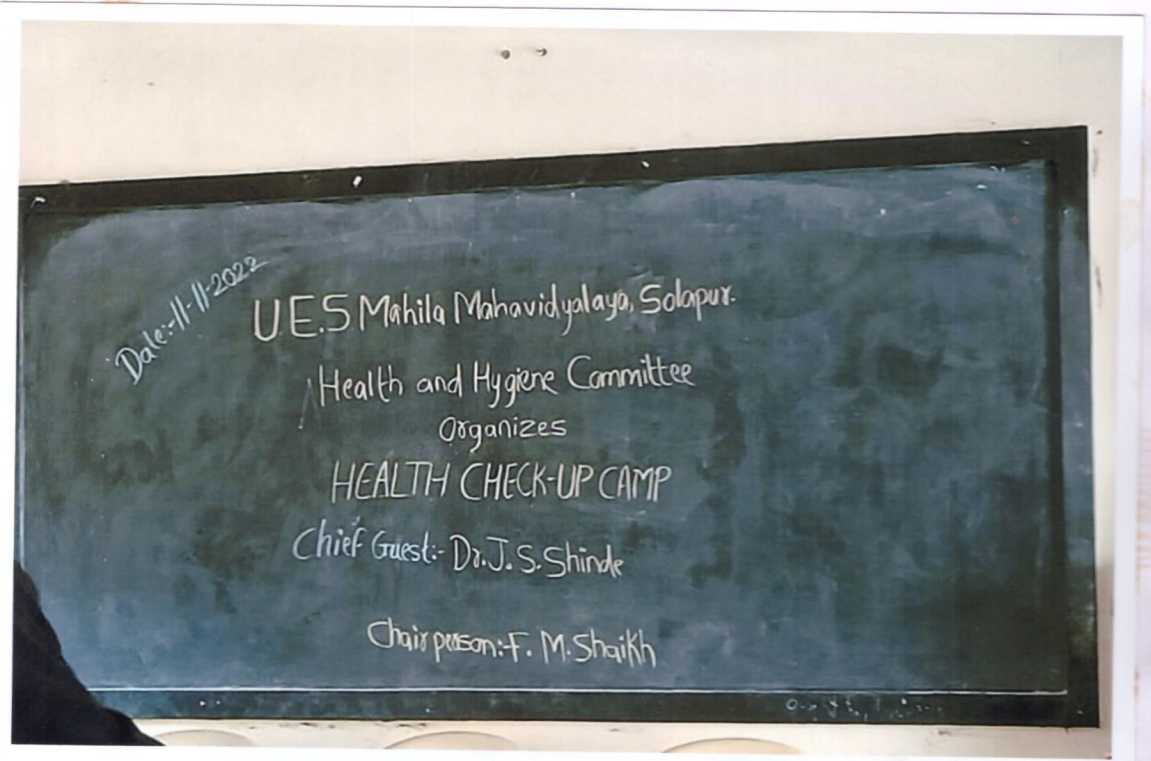 Date:-11-11-2022
U.E.S Mahila Mahavidyalaya, Solapur.
Health and Hygiene Committee
organizes
HEALTH CHECK-UP CAMP
Chief Guest:- Dr. J. S. Shinde
Chairperson:- F. M. Shaikh